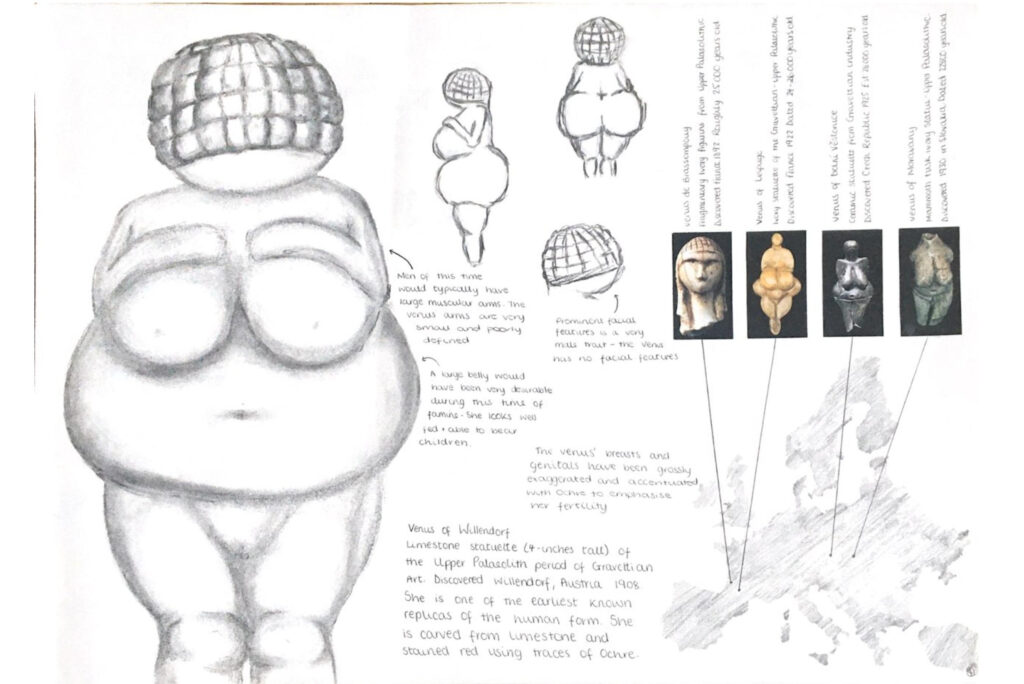 Venus de Brassempouy
Fragmentary ivory figurine from upper Palaeolithic
Discovered France 1892 Roughly 25000 years old
Venus of Lespuge
Ivory statuette of the Gravettian - upper Palaeolithic
Discovered France 1922 Dated 24-26000 years old
Venus of Dolní Věstonice
Ceramic statuette from Gravettian industry
Discovered Czech Republic 1925 Est 26000 years old
Venus of Moravany
Mammoth tusk ivory statue - upper Palaeolithic
Discovered 1930 in Slovakia Dated 22800 years old
Men of this time
would typically have
large muscular arms. The
venus arms are very
small and poorly
defined
Prominent facial
features is a very
male trait - the venus
has no facial features
A large belly would
have been very desirable
during this time of
famine - She looks well
fed + able to bear
children.
The venus' breasts and
genitals have been grossly
exaggerated and accentuated
with ochre to emphasise
her fertility
Venus of Willendorf
Limestone statuette (4-inches tall) of
the Upper Palaeolith period of Gravettian
Art. Discovered Willendorf, Austria 1908
She is one of the earliest known
replicas of the human form. She
is carved from limestone and
stained red using traces of Ochre.